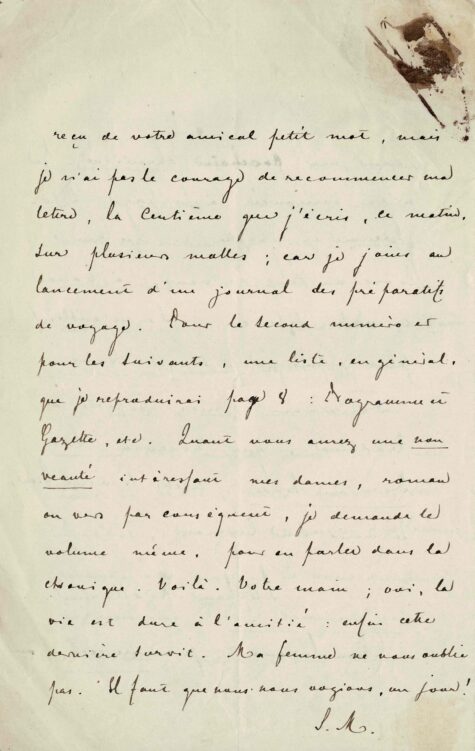 reçu de votre amical petit mot, mais
je n'ai pas le courage de recommencer ma
lettre, la centième que j'écris, ce matin,
sur plusieurs malles ; car je joins au
lancement d'un journal des préparatifs
de voyage. Pour le second numéro et
pour les suivants, une liste, en général,
que je reproduirai page 8 : Programme et
Gazette, etc. Quant vous aurez une nou
veauté intéressant mes dames, roman
ou vers par conséquent, je demande le
volume même, pour en parler dans la
chronique. Voilà. Votre main ; oui, la
vie est dure à l'amitié : enfin cette
dernière survit. Ma femme ne vous oublie
pas. Il faut que nous nous voyions, un jour !
S. M.